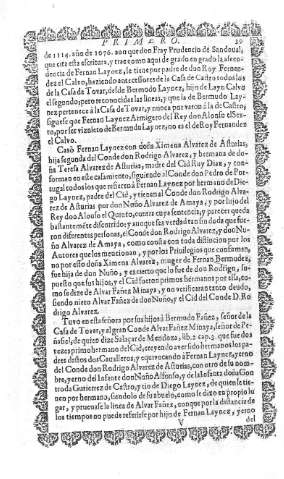 PRIMERO. 29
de 1114. año de 1076. aunque don Fray Prudencio de Sandoval,
que cita esta escritura, y trae como aqui de grado en grado la ascen-
dencia de Fernan Laynez, le tiene por padre de don Roy Fernan-
dez el Calvo, haziendo antecessores de la Casa de Castro todos los
de la Casa de Tovar, desde Bermudo Laynez, hijo de Layn Calvo
el segundo, pero reconocidas las lineas, y que la de Bermudo Lay-
nez pertenece à la Casa de Tovar, y nunca por varon à la de Castro,
siguese que Fernan Laynez Armigero del Rey don Alonso el Sex-
to, por ser viznieto de Bermudo Laynez, no es el de Roy Fernandez
el Calvo.
Casò Fernan Laynez con doña Ximena Alvarez de Asturias,
hija segunda del Conde don Rodrigo Alvarez, y hermana de do-
ña Teresa Alvarez de Asturias, madre del Cid Ruy Diaz, y con-
forman en este casamiento, siguiendo al Conde don Pedro de Por-
tugal todos los que refieren à Fernan Laynez por hermano de Die-
go Laynez, padre del Cid, y tienen al Conde don Rodrigo Alva-
rez de Asturias por don Nuño Alvarez de Amaya, y por hijo del
Rey don Alonso el Quinto, contra cuya sentencia, y parecer queda
bastantemente difinido, y aunque sea verdad, en sin duda que fue-
ron diferentes personas, el Conde don Rodrigo Alvarez, y don Nu-
ño Alvarez de Amaya, como consta con toda distincion por los
Autores que les mencionan, y por los Privilegios que confirman,
no por esso doña Ximena Alvarez, muger de Fernan Bermudez,
fue hija de don Nuño, y es cierto que lo fue de don Rodrigo, su-
puesto que sus hijos, y el Cid fueron primos hermanos por ella, co-
mo se dize de Alvar Fañez Minaya, y no verificara tanto deudo,
siendo nieto Alvar Fañez de don Nuño, y el Cid del Conde D. Ro-
drigo Alvarez.
Tuvo en esta señora por sus hijos à Bermudo Fañez, señor de la
Casa de Tovar, y al gran Conde Alvar Fañez Minaya, señor de Pe-
ñafiel, de quien dize Salazar de Mendoza, lib. 2. cap. 9. que fue dos
vezes primo hermano del Cid, respecto à ver sido hermanos los pa-
dres destos dos Cavalleros, y equivocando à Fernan Laynez, yerno
del Conde don Rodrigo Alvarez de Asturias, con otro de su nom-
bre, yerno del Infante don Nuño Alfonso, y de la Infanta doña Con
troda Gutierrez de Castro, y tio de Diego Laynez, de quien le tie-
nen por hermano, siendolo de su abuelo, como se dixo en propio lu-
gar, y prueuase la linea de Alvar Fañez, aunque por la distancia de
los tiempos no puede referirse por hijo de Fernan Laynez, yerno
V del